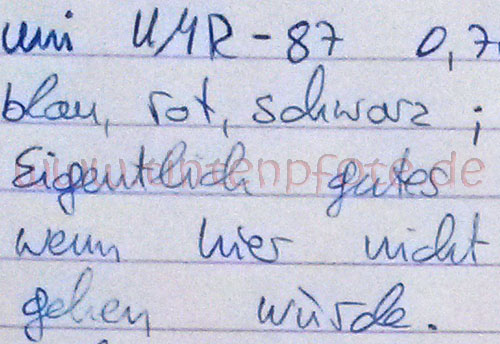 uni UMR-87 0,7
blau, rot, schwarz ;
Eigentlich gutes
www.tintenpfote.de
wenn hier nicht
gehen würde.